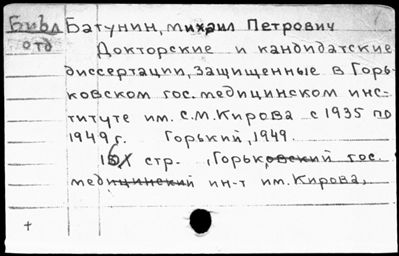 Библ Батунин, Михаил Петрович
отд Докторские и кандидатские
диссертации, защищенные в Горь-
ковском гос. медицинском инс-
титуте им. С.М.Кирова с 1935 по
1949 г. Горький, 1949.
16 стр. (Горьковский гос.
медицинский ин-т им. Кирова,
+